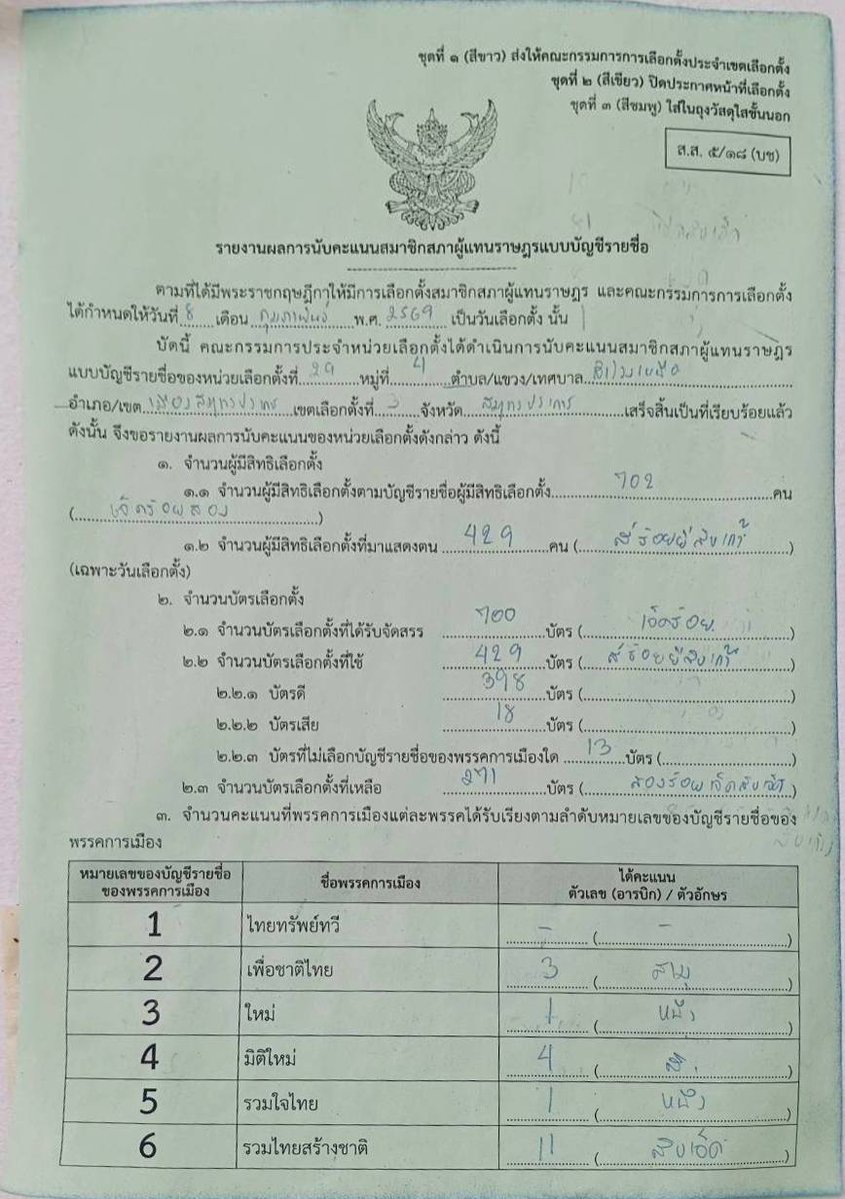 ชุดที่ ๑ (สีขาว) ส่งให้คณะกรรมการการเลือกตั้งประจำเขตเลือกตั้ง
ชุดที่ ๒ (สีเขียว) ปิดประกาศหน้าที่เลือกตั้ง
ชุดที่ ๓ (สีชมพู) ใส่ในถุงวัสดุใสชั้นนอก
ส.ส. ๕/๑๘ (บช)
รายงานผลการนับคะแนนสมาชิกสภาผู้แทนราษฎรแบบบัญชีรายชื่อ
ตามที่ได้มีพระราชกฤษฎีกาให้มีการเลือกตั้งสมาชิกสภาผู้แทนราษฎร และคณะกรรมการการเลือกตั้ง
ได้กำหนดให้วันที่ 8 เดือน กุมภาพันธ์ พ.ศ. 2569 เป็นวันเลือกตั้ง นั้น
บัดนี้ คณะกรรมการประจำหน่วยเลือกตั้งได้ดำเนินการนับคะแนนสมาชิกสภาผู้แทนราษฎร
แบบบัญชีรายชื่อของหน่วยเลือกตั้งที่ 29 หมู่ที่ 4 ตำบล/แขวง/เทศบาล
อำเภอ/เขต เมืองสมุทรปราการ เขตเลือกตั้งที่ 3 จังหวัด สมุทรปราการ เสร็จสิ้นเป็นที่เรียบร้อยแล้ว
ดังนั้น จึงขอรายงานผลการนับคะแนนของหน่วยเลือกตั้งดังกล่าว ดังนี้
๑. จำนวนผู้มีสิทธิเลือกตั้ง
๑.๑ จำนวนผู้มีสิทธิเลือกตั้งตามบัญชีรายชื่อผู้มีสิทธิเลือกตั้ง 702 คน
(เจ็ดร้อยสอง)
๑.๒ จำนวนผู้มีสิทธิเลือกตั้งที่มาแสดงตน 429 คน (สี่ร้อยยี่สิบเก้า)
(เฉพาะวันเลือกตั้ง)
๒. จำนวนบัตรเลือกตั้ง
๒.๑ จำนวนบัตรเลือกตั้งที่ได้รับจัดสรร 700 บัตร (เจ็ดร้อย)
๒.๒ จำนวนบัตรเลือกตั้งที่ใช้ 429 บัตร (สี่ร้อยยี่สิบเก้า)
๒.๒.๑ บัตรดี 398 บัตร ( )
๒.๒.๒ บัตรเสีย 18 บัตร ( )
๒.๒.๓ บัตรที่ไม่เลือกบัญชีรายชื่อของพรรคการเมืองใด 13 บัตร ( )
๒.๓ จำนวนบัตรเลือกตั้งที่เหลือ 271 บัตร (สองร้อยเจ็ดสิบเอ็ด)
๓. จำนวนคะแนนที่พรรคการเมืองแต่ละพรรคได้รับเรียงตามลำดับหมายเลขของบัญชีรายชื่อของ
พรรคการเมือง
หมายเลขของบัญชีรายชื่อ ของพรรคการเมือง ชื่อพรรคการเมือง ได้คะแนน ตัวเลข (อารบิก) / ตัวอักษร
1 ไทยทรัพย์ทวี - (-)
2 เพื่อชาติไทย 3 (สาม)
3 ใหม่ 1 (หนึ่ง)
4 มิติใหม่ 4 (สี่)
5 รวมใจไทย 1 (หนึ่ง)
6 รวมไทยสร้างชาติ 11 (สิบเอ็ด)